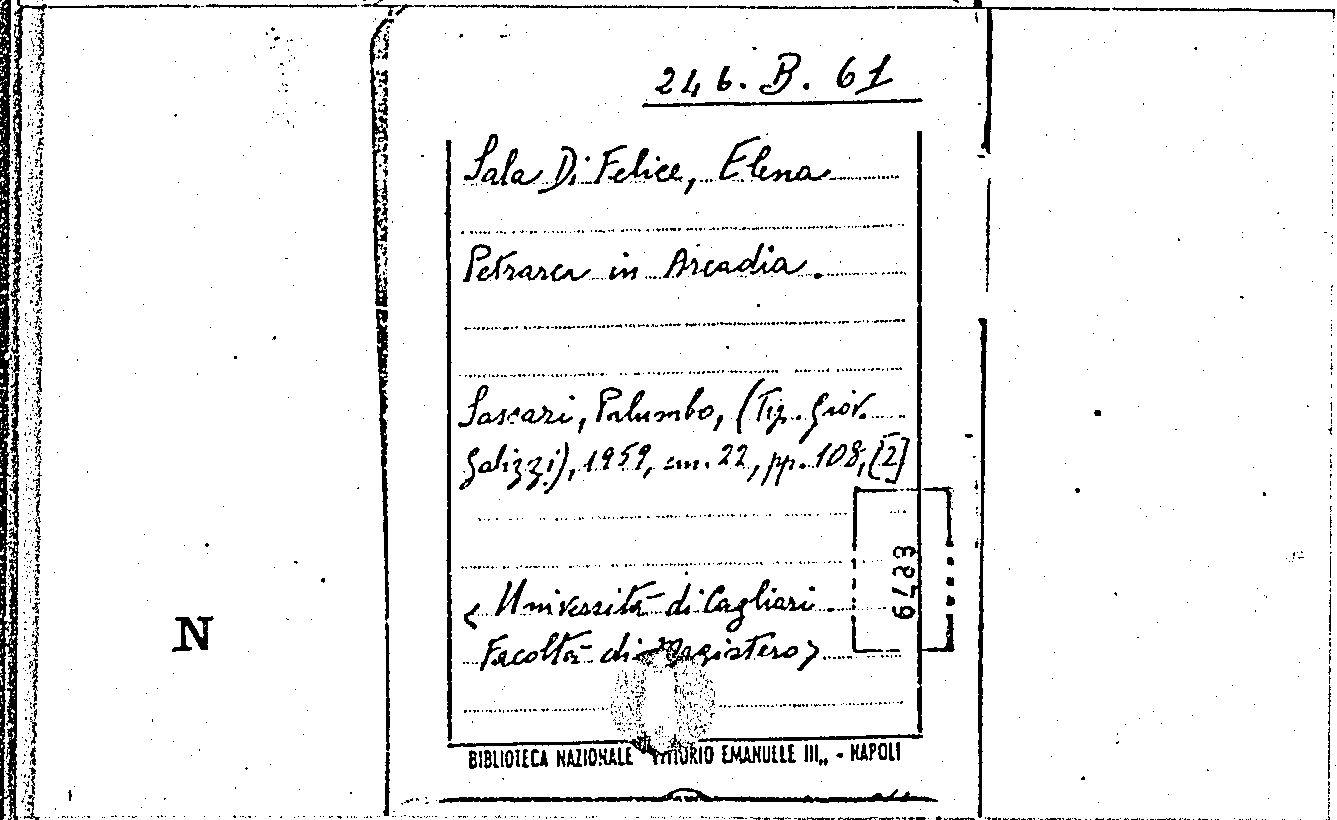 246. B. 61
Sala Di Felice, Elena
Petrarca in Arcadia.
Sassari, Palumbo, (Tip. Giov.
Galizzi), 1959, cm. 22, pp. 108, [2]
< Università di Cagliari.
Facoltà di Magistero>
N
BIBLIOTECA NAZIONALE "VITTORIO EMANUELE III„ - NAPOLI